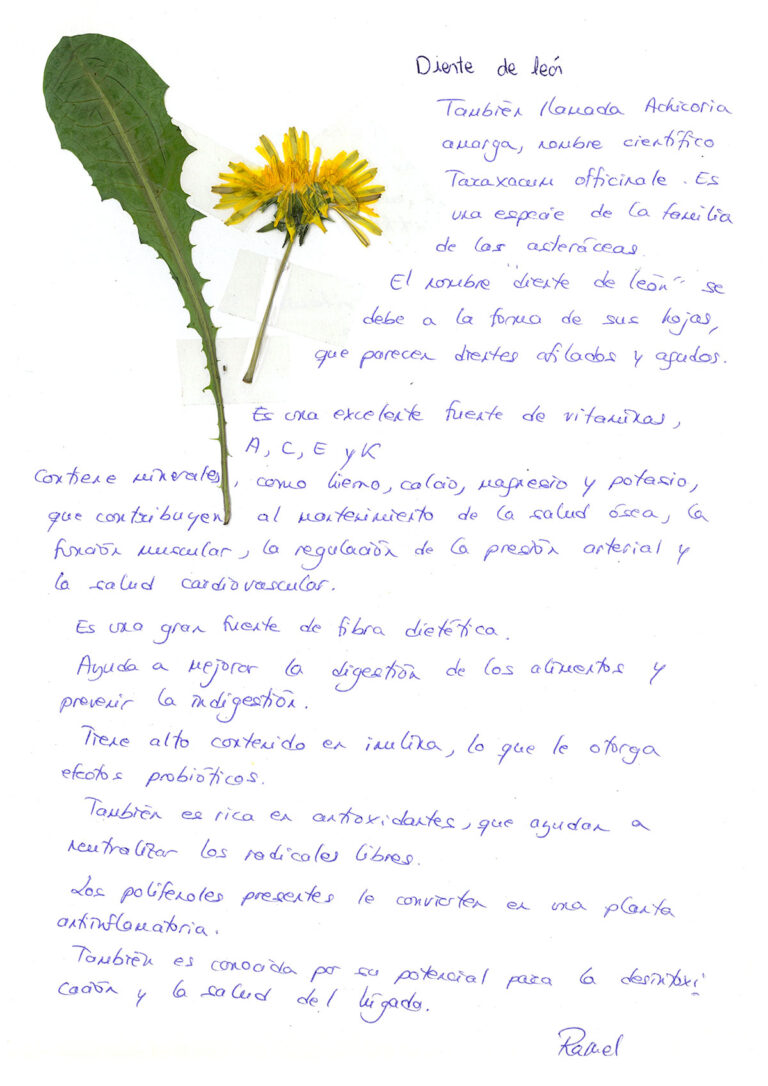 Diente de león
También llamada Achicoria
amarga, nombre científico
Taraxacum officinale. Es
una especie de la familia
de las asteráceas.
El nombre "diente de león" se
debe a la forma de sus hojas,
que parecen dientes afilados y agudos.
Es una excelente fuente de vitaminas,
A, C, E y K
Contiene minerales, como hierro, calcio, magnesio y potasio,
que contribuyen al mantenimiento de la salud ósea, la
función muscular, la regulación de la presión arterial y
la salud cardiovascular.
Es una gran fuente de fibra dietética.
Ayuda a mejorar la digestión de los alimentos y
prevenir la indigestión.
Tiene alto contenido en inulina, lo que le otorga
efectos probióticos.
También es rica en antioxidantes, que ayudan a
neutralizar los radicales libres.
Los polifenoles presentes le convierten en una planta
antinflamatoria.
También es conocida por su potencial para la desintoxi
cación y la salud del hígado.